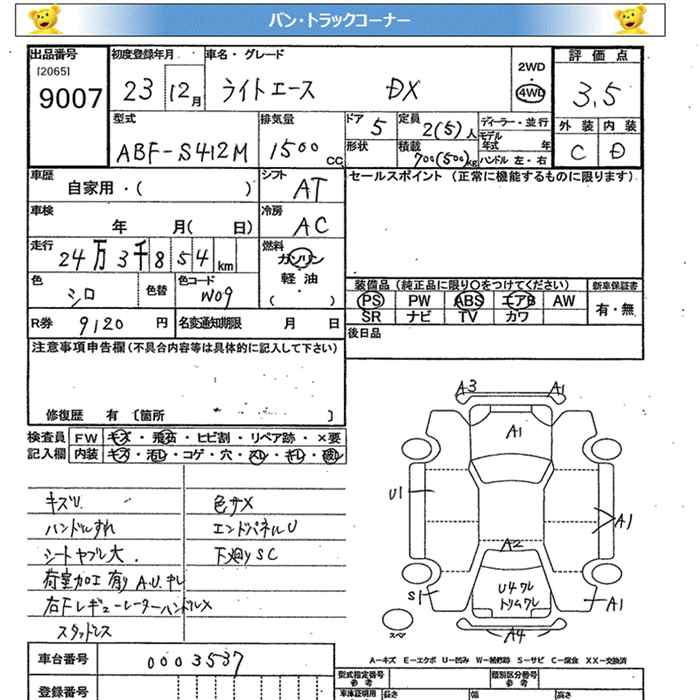 バン・トラックコーナー
出品番号
[2065]
9007
初度登録年月
23 12月
車名・グレード
ライトエース DX
2WD
・
4WD
評価点
3.5
型式
ABF-S412M
排気量
1500 cc
ドア 5
形状
定員 2(5)人
積載 700(500)kg
ディーラー・並行
モデル年式 年
ハンドル 左・右
外装 内装
C D
車歴
自家用・( )
シフト
AT
セールスポイント (正常に機能するものに限ります)
車検
年 月( 日)
冷房
AC
走行
24万3千854km
燃料
ガソリン
軽油
( ・ )
色
シロ
色替
色コード
W09
装備品(純正品に限り〇をつけてください)
新車保証書
PS PW ABS エアB AW
SR ナビ TV カワ
有・無
R券 9120円
名変通知期限 月 日
後日品
注意事項申告欄(不具合内容等は具体的に記入して下さい)
修復歴 有 〔箇所 〕
検査員 FW キズ・飛石・ヒビ割・リペア跡・×要
記入欄 内装 キズ・汚レ・コゲ・穴・スレ・キレ・破レ
キズU.
ハンドルすれ
シートヤブレ大.
荷室加工有り A.U.キレ
右下レギュレーターハンドルX
スタッドレス
色サメ
エンドパネルU
下廻りSC
A3 A1
A1
U1
A1
A2
U4ワレ
トリムワレ
S1
A1
A4
スペア
A-キズ E-エクボ U-凹み W-補修跡 S-サビ C-腐食 XX-交換済
車台番号 0003537
登録番号
型式指定番号
参考
類別区分番号
参考
車庫証明用
長さ
幅
高さ